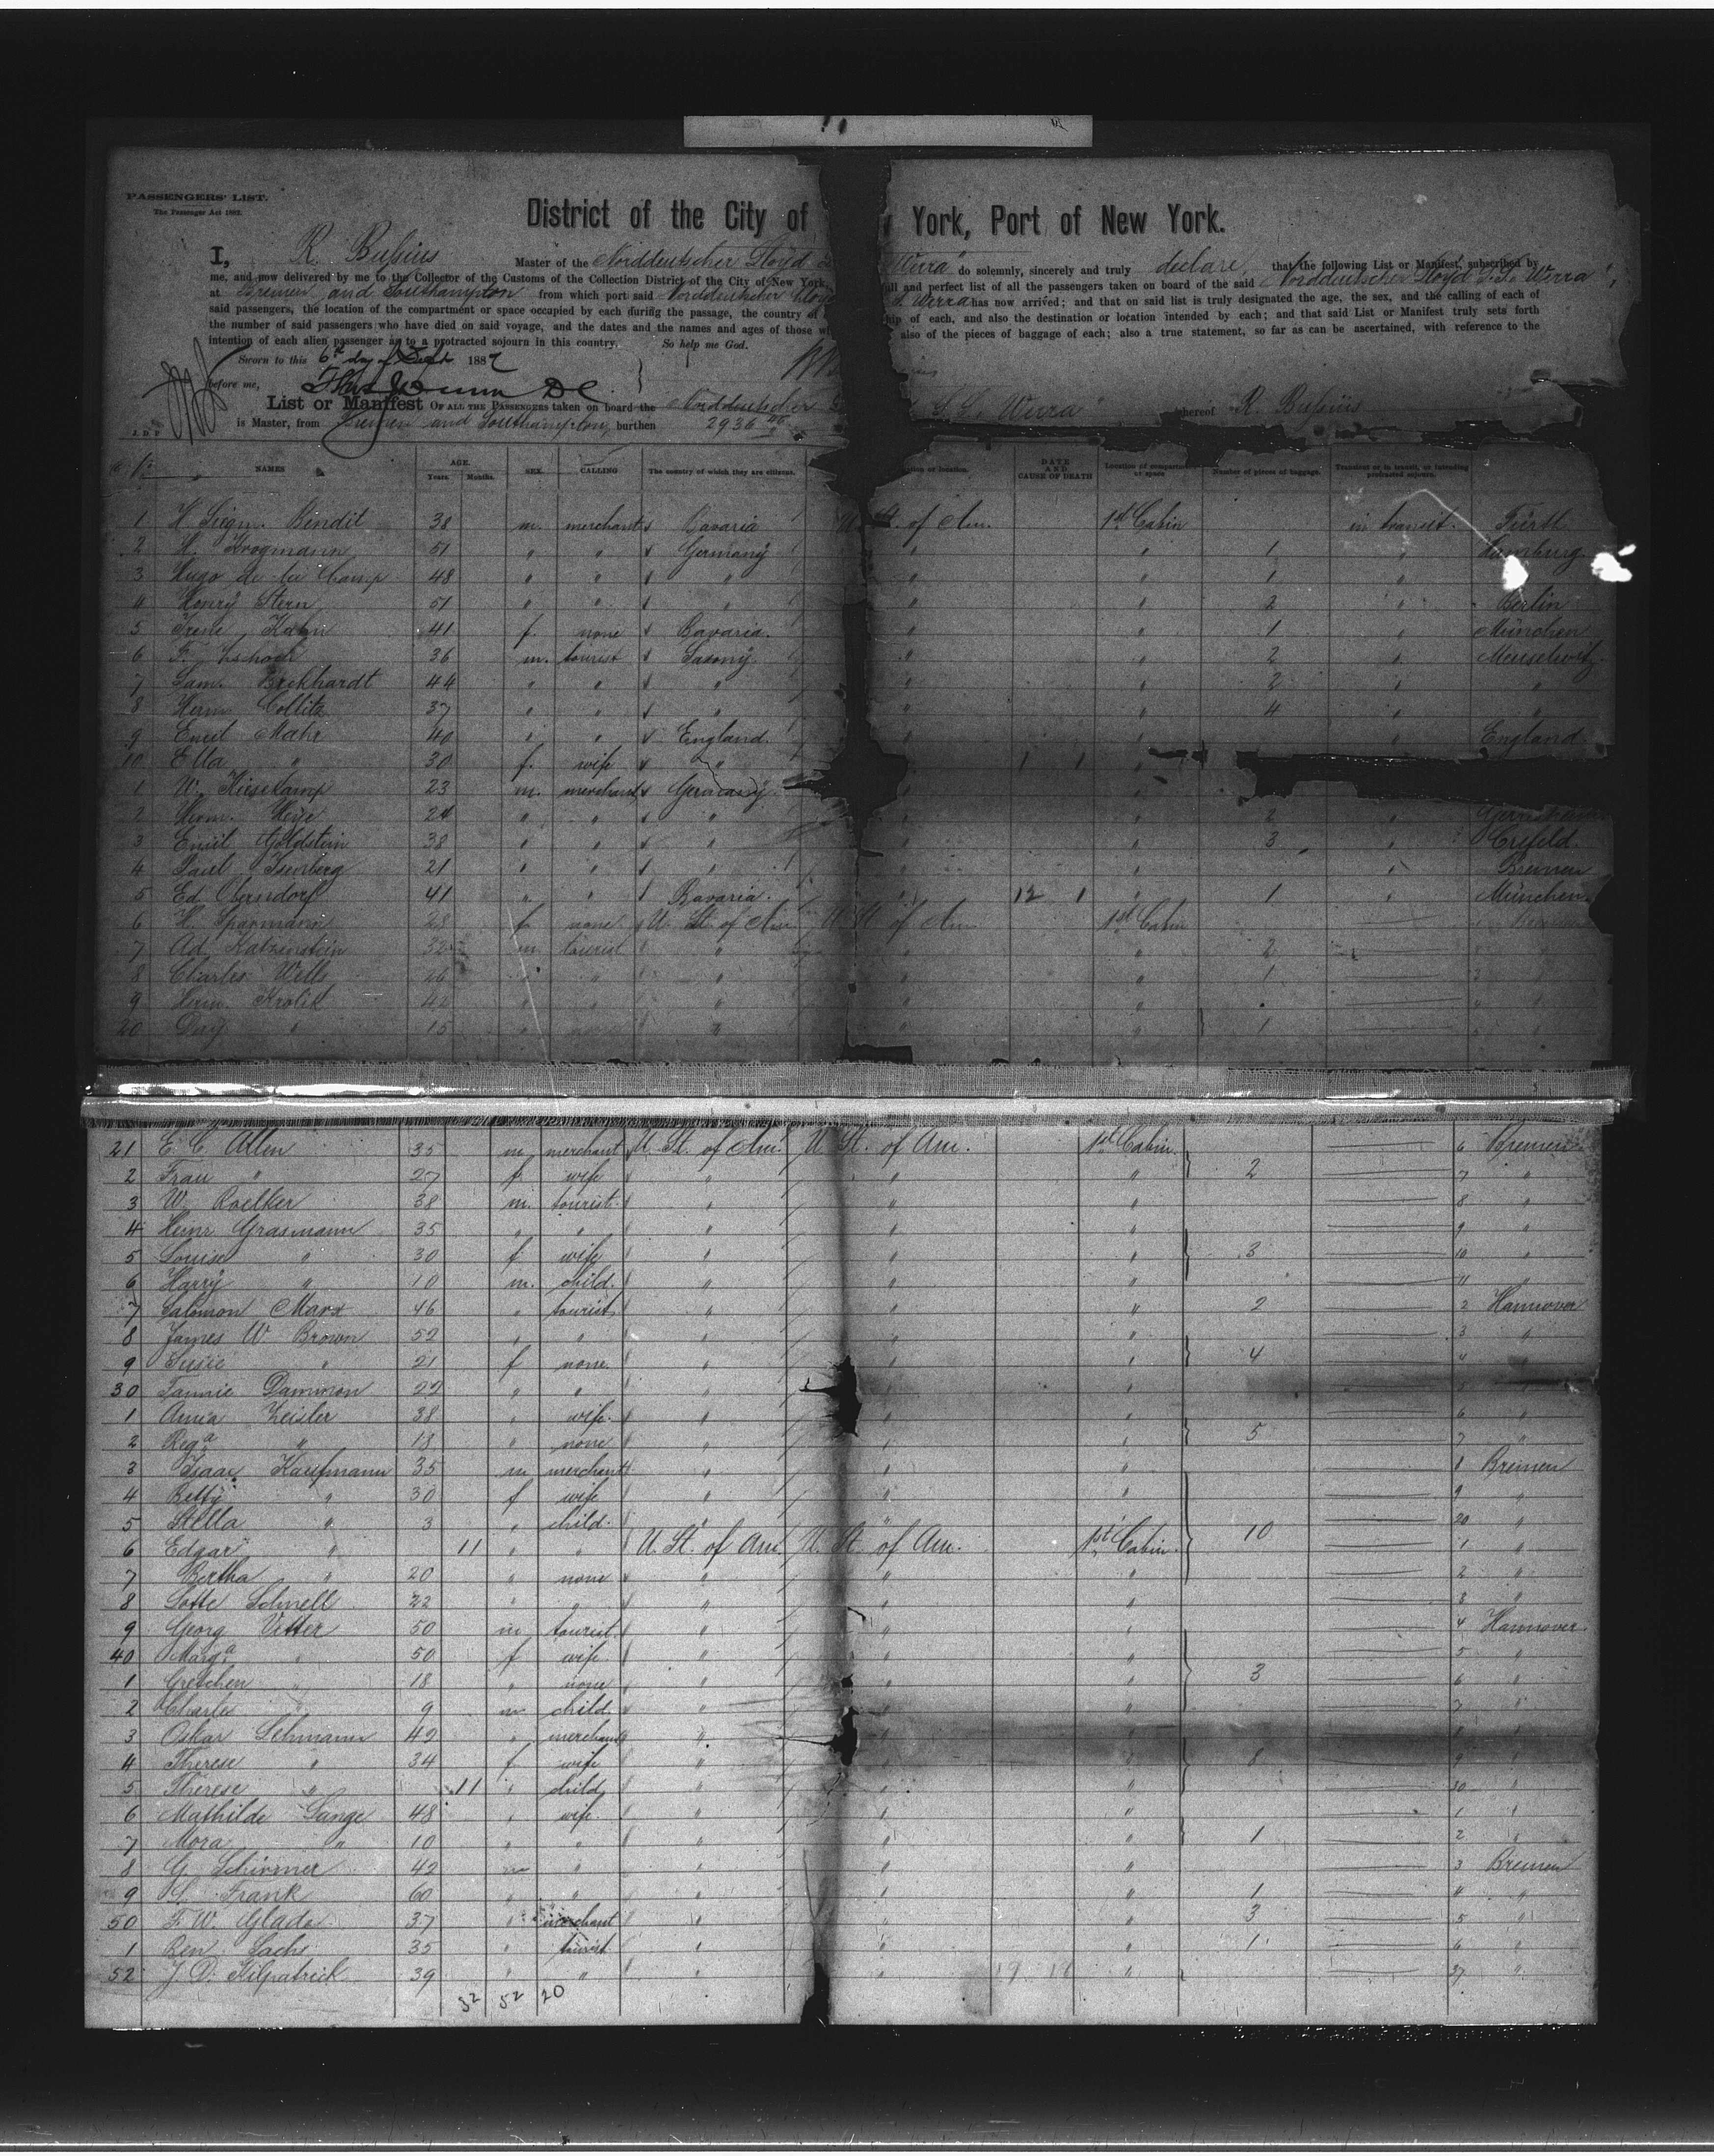 PASSENGERS' LIST.
The Passenger Act 1882.
District of the City of York, Port of New York.
I, R. Bussius Master of the Norddeutscher Lloyd Werra" do solemnly, sincerely and truly declare, that the following List or Manifest, subscribed by
me, and now delivered by me to the Collector of the Customs of the Collection District of the City of New York, full and perfect list of all the passengers taken on board of the said Norddeutscher Lloyd S.S. Werra",
at Bremen and Southampton from which port said Norddeutscher Lloyd S. Werra has now arrived; and that on said list is truly designated the age, the sex, and the calling of each of
said passengers, the location of the compartment or space occupied by each during the passage, the country of of each, and also the destination or location intended by each; and that said List or Manifest truly sets forth
the number of said passengers who have died on said voyage, and the dates and the names and ages of those also of the pieces of baggage of each; also a true statement, so far as can be ascertained, with reference to the
intention of each alien passenger as to a protracted sojourn in this country. So help me God.
Sworn to this 6th day of Sept 188
before me,
List or Manifest OF ALL THE PASSENGERS taken on board the Norddeutscher S. Werra" whereof R. Bussius
is Master, from Bremen and Southampton, burthen 2936
NAMES AGE. Years Months. SEX. CALLING The country of which they are citizens. location. DATE AND CAUSE OF DEATH Location of compartment or space Number of pieces of baggage. Transient or in transit, or intending protracted sojourn.
1 H. Siegm. Bendit 38 m. merchant Bavaria St. of Am. 1st Cabin in transit. Fürth
2 H. Krogmann 51 " " Germany " " 1 " Hamburg.
3 Hugo de la Camp 48 " " " " " 1 "
4 Henry Stern 51 " " " " " 2 " Berlin
5 Irene Kahn 41 f. none Bavaria. " " 1 " München
6 F. Zschoch 36 m. tourist Saxony " " 2 " Meuselwitz
7 Sam. Burkhardt 44 " " " " " 2 " "
8 Herm Collitz 37 " " " " " 4 " "
9 Emil Mahr 40 " " England. " " " England.
10 Ella " 30 f. wife " " "
1 W. Kirsekamp 23 m. merchant Germany " "
2 Herm. Heye 24 " " " " " 2 "
3 Emil Goldstein 38 " " " " " 3 " Crefeld.
4 Paul Isenberg 21 " " " " " " Bremen
5 Ed. Oberndorf 41 " " Bavaria. " 12 1 " 1 " München.
6 H. Sparmann 28 f none U. St. of Am. U. St. of Am. 1st Cabin
7 Ad. Katzenstein 32 m. tourist " " " 2
8 Charles Wells 46 " " " " " 1 "
9 Herm. Krolik 42 " " " " "
20 " 15 " " " " 1
21 E. C. Allen 35 m. merchant U. St. of Am. U. St. of Am. 1st Cabin. 6 Bremen
2 Frau " 27 f wife " " " 2 7 "
3 W. Roelker 38 m. tourist " " " 8 "
4 Heinr Grasmann 35 " " " " " 9 "
5 Louise " 30 f wife " " " 3 10 "
6 Harry " 10 m. child. " " " 11 "
7 Salomon Marx 46 " tourist " " " 2 2 Hannover
8 James W. Brown 52 " " " " " 3 "
9 Susie " 21 f none. " " " 4 4 "
30 Fannie Dammon 22 " " " " " 5 "
1 Anna Zeisler 38 " wife. " " " 6 "
2 Rega " 18 " none " " " 5 7 "
3 Isaac Kaufmann 35 m merchant " " " 1 Bremen
4 Betty " 30 f wife " " " 9 "
5 Stella " 3 " child. " " 20 "
6 Edgar " 11 " " U. St. of Am. U. St. of Am. 1st Cabin. 10 1 "
7 Bertha " 20 " none " " " 2 "
8 Lotte Schnell 22 " " " " " "
9 Georg Vetter 50 m tourist. " " " 4 Hannover.
40 Marga " 50 f wife. " " " 5 "
1 Gretchen " 18 " none " " " 3 6 "
2 Charles " 9 m child. " " " 7 "
3 Oskar Lehmann 42 " merchant " " " "
4 Therese " 34 f. wife " " " 8 9 "
5 Therese " 11 " child " " " 30 "
6 Mathilde Lange 48 " wife. " " " 1 "
7 Mora " 10 " " " " " 1 2 "
8 G. Schirmer 42 m " " " " 3 Bremen
9 S. Frank 60 " " " " " 1 4 "
50 F. W. Glade 37 " merchant " " " 3 5 "
1 Ben Sachs 35 " tourist " " " 1 6 "
52 J. D. Kilpatrick 39 " " " " " 37 "
32 52 20